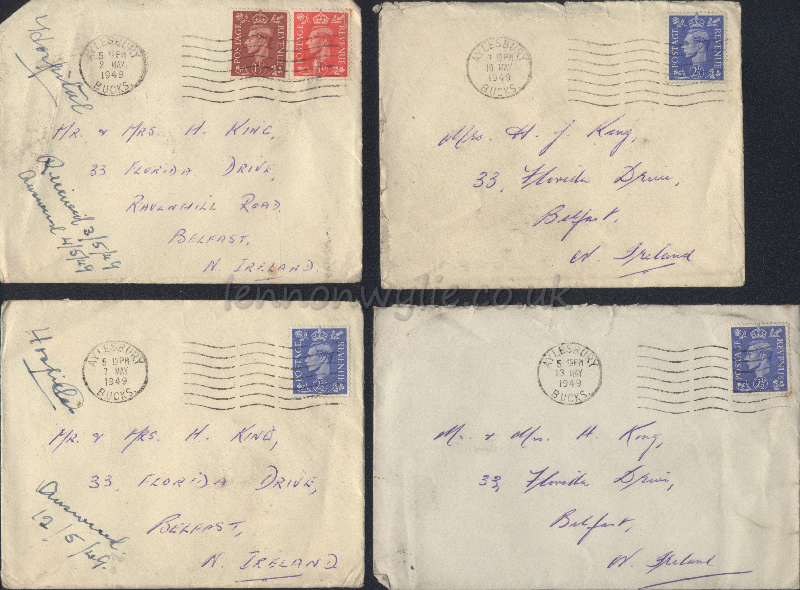 Hospital
AYLESBURY
5 15PM
2 MAY
1949
BUCKS.
POSTAGE REVENUE
POSTAGE REVENUE
MR. & MRS. H. KING,
33 FLORIDA DRIVE,
RAVENHILL ROAD,
BELFAST,
N. IRELAND.
Received 3/5/49
Answered 4/5/49
AYLESBURY
7 15PM
1949
BUCKS.
POSTAGE REVENUE
2½
Mrs. H. J. King,
33, Florida Drive,
Belfast,
N. Ireland
lennonwylie.co.uk
Hospital
AYLESBURY
5 15PM
7 MAY
1949
BUCKS.
POSTAGE REVENUE
2½
MR. & MRS. H. KING,
33, FLORIDA DRIVE,
BELFAST,
N. IRELAND
Answered
12/5/49.
AYLESBURY
5 15PM
13 MAY
1949
BUCKS.
POSTAGE REVENUE
2½
Mr. & Mrs. H. King,
33, Florida Drive,
Belfast,
N. Ireland